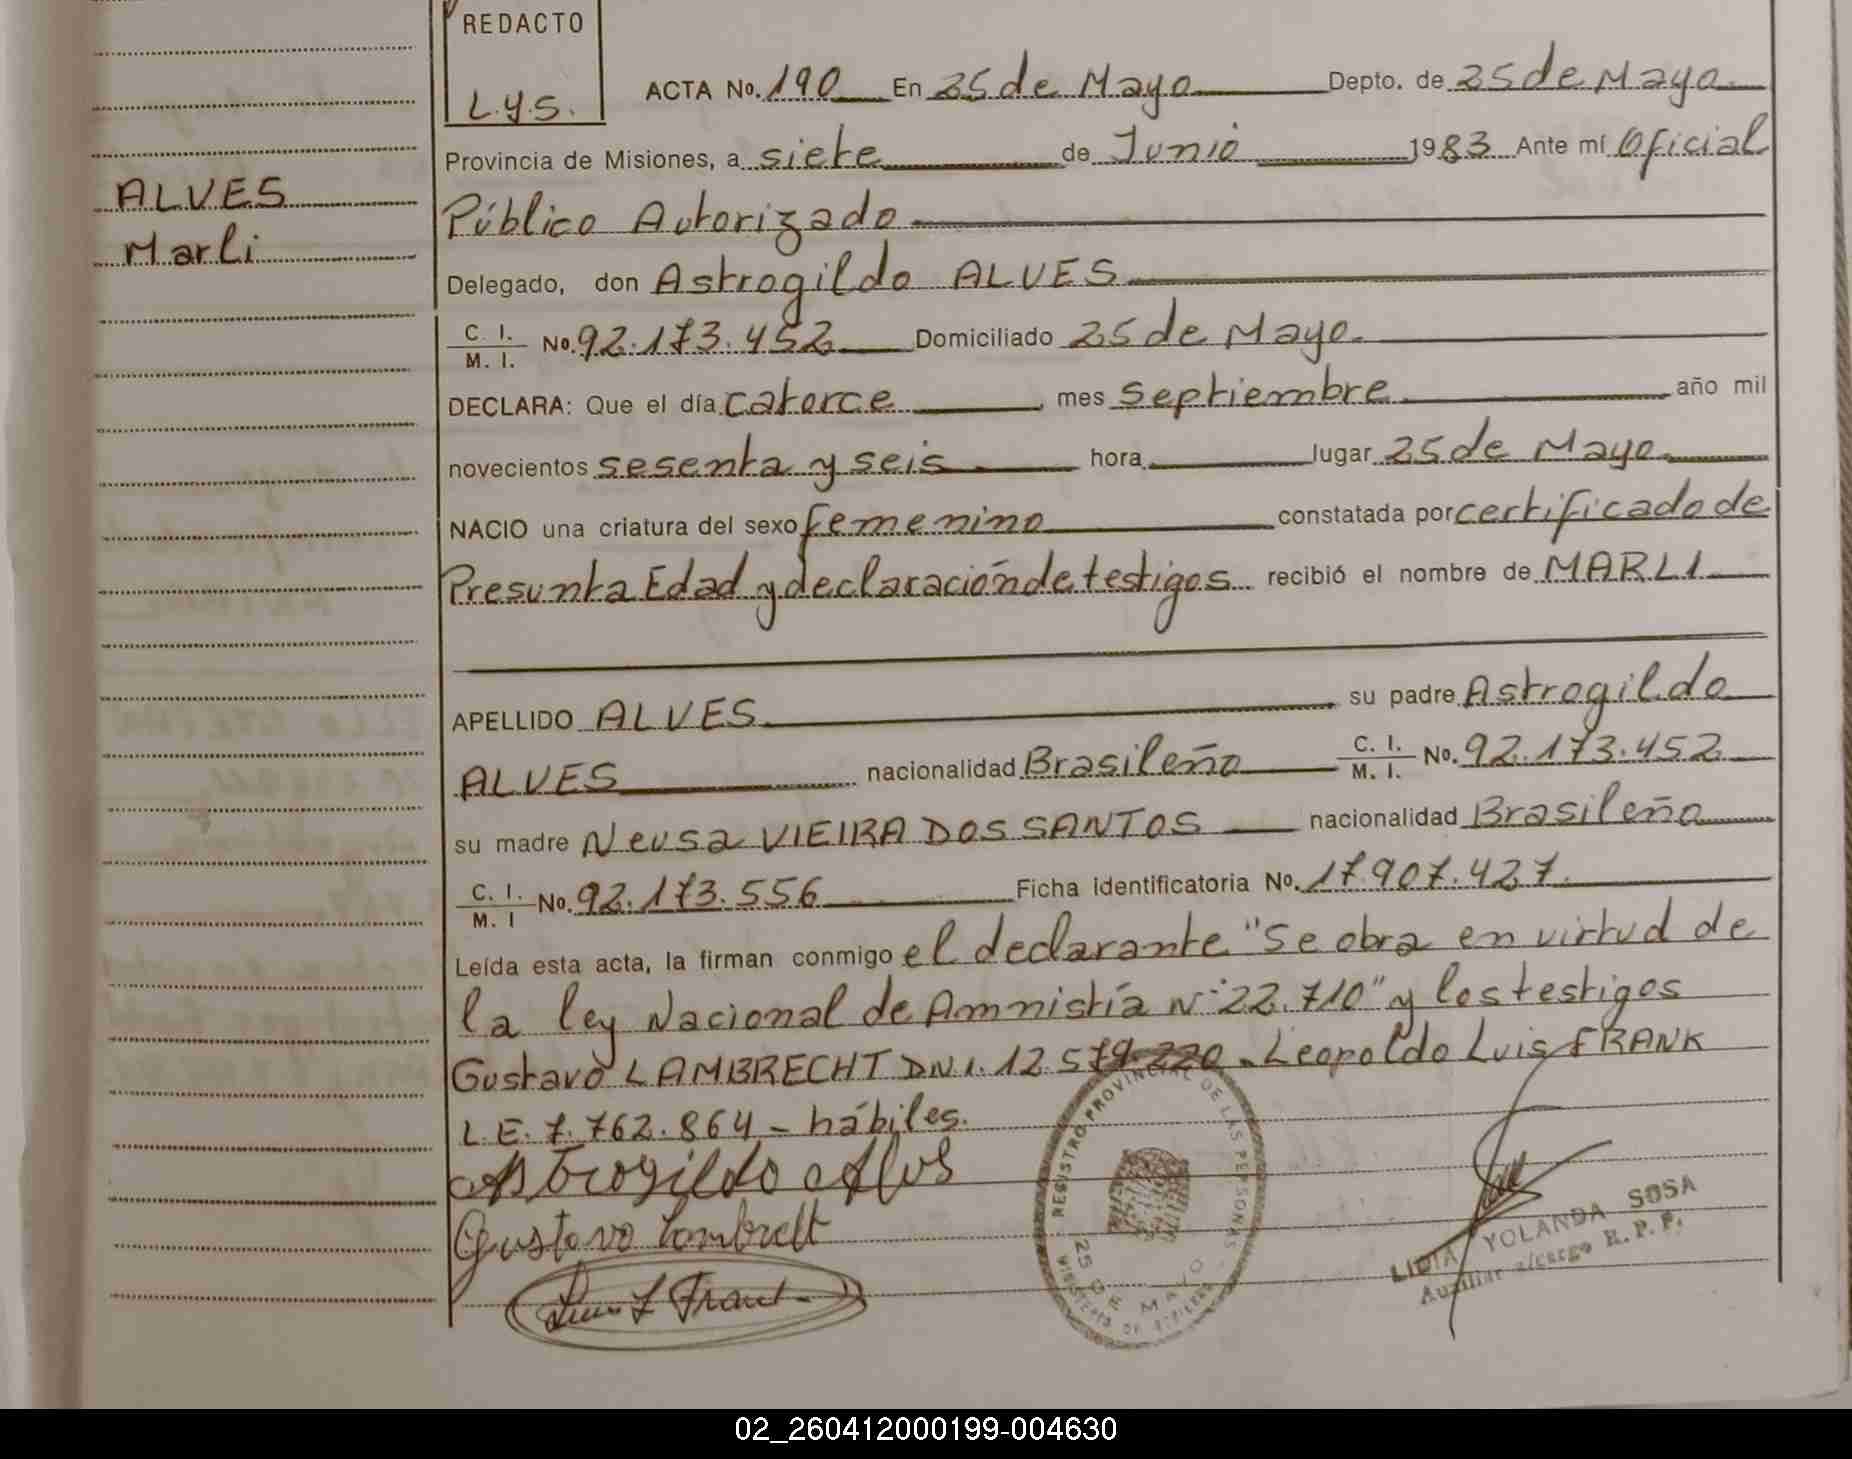 REDACTO
L.y.S.
ACTA No. 190 En 25 de Mayo Depto. de 25 de Mayo
Provincia de Misiones, a siete de Junio 1983 Ante mí Oficial
ALVES
Público Autorizado
Marli
Delegado, don Astrogildo ALVES
C. I. M. I. No. 92.173.452 Domiciliado 25 de Mayo.
DECLARA: Que el día catorce mes septiembre año mil
novecientos sesenta y seis hora lugar 25 de Mayo
NACIO una criatura del sexo femenino constatada por certificado de
Presunta Edad y declaración de testigos recibió el nombre de MARLI
APELLIDO ALVES su padre Astrogildo
ALVES nacionalidad Brasileño C. I. M. I. No. 92.173.452
su madre Neusa VIEIRA DOS SANTOS nacionalidad Brasileña
C. I. M. I No. 92.173.556 Ficha identificatoria No. 17.907.427.
Leída esta acta, la firman conmigo el declarante "Se obra en virtud de
la ley Nacional de Amnistía N° 22.710" y los testigos
Gustavo LAMBRECHT DNI. 12.579.220 - Leopoldo Luis FRANK
L.E. 7.762.864 - hábiles.
Astrogildo Alves
Gustavo Lambrett
REGISTRO PROVINCIAL DE LAS PERSONAS
25 DE MAYO
LIDIA YOLANDA SOSA
Auxiliar a/cargo R. P. P.
02_260412000199-004630